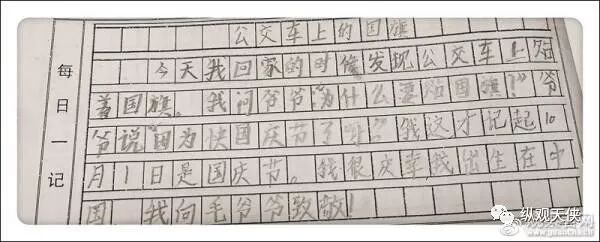 公交车上的国旗
今天我回家的时候发现公交车上贴
着国旗。我问爷爷:“为什么要贴国旗?”爷
爷说“因为快国庆节了呀?”我这才记起10
月1日是国庆节。我很庆幸我出生在中
国 我向毛爷爷致敬!
每日一记
纵观天侠